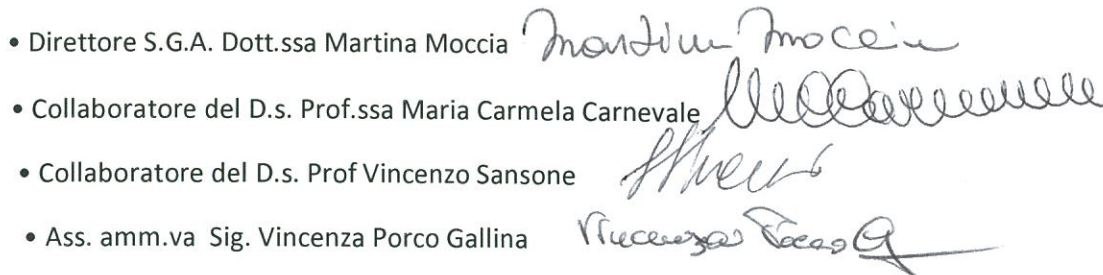 • Direttore S.G.A. Dott.ssa Martina Moccia Martina Moccia
• Collaboratore del D.s. Prof.ssa Maria Carmela Carnevale
• Collaboratore del D.s. Prof Vincenzo Sansone
• Ass. amm.va Sig. Vincenza Porco Gallina Vincenza Porco G